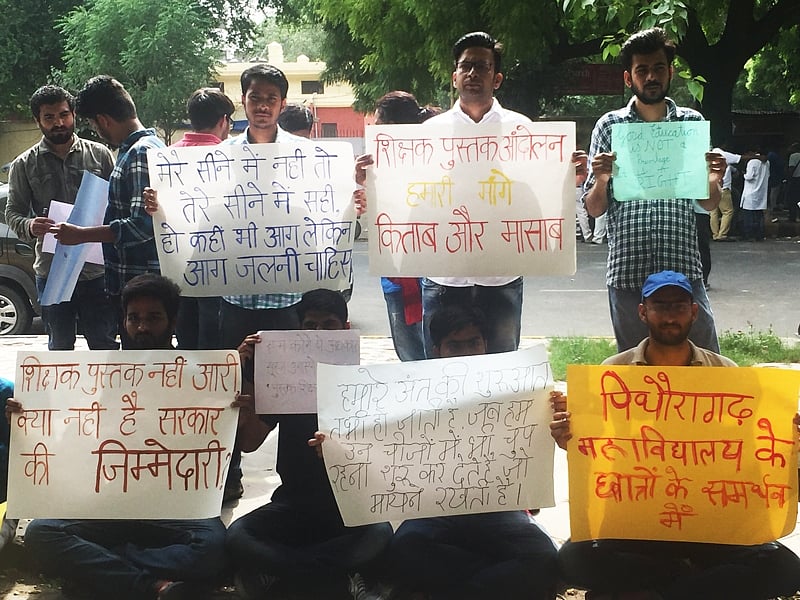 मेरे सीने में नहीं तो
तेरे सीने में सही
हो कहीं भी आग लेकिन
आग जलनी चाहिए
शिक्षक पुस्तक आंदोलन
हमारी मांगे
किताब और मासाब
Good Education
is NOT a
Privilege
RIGHT
शिक्षक पुस्तक नहीं आरी
क्या नहीं है सरकार
की जिम्मेदारी?
हमारे अंत की शुरुआत
तभी हो जाती है जब हम
उन चीजों में भी चुप
रहना शुरू कर देते हैं जो
मायने रखती हैं।
पिथौरागढ़
महाविद्यालय के
छात्रों के समर्थन
में